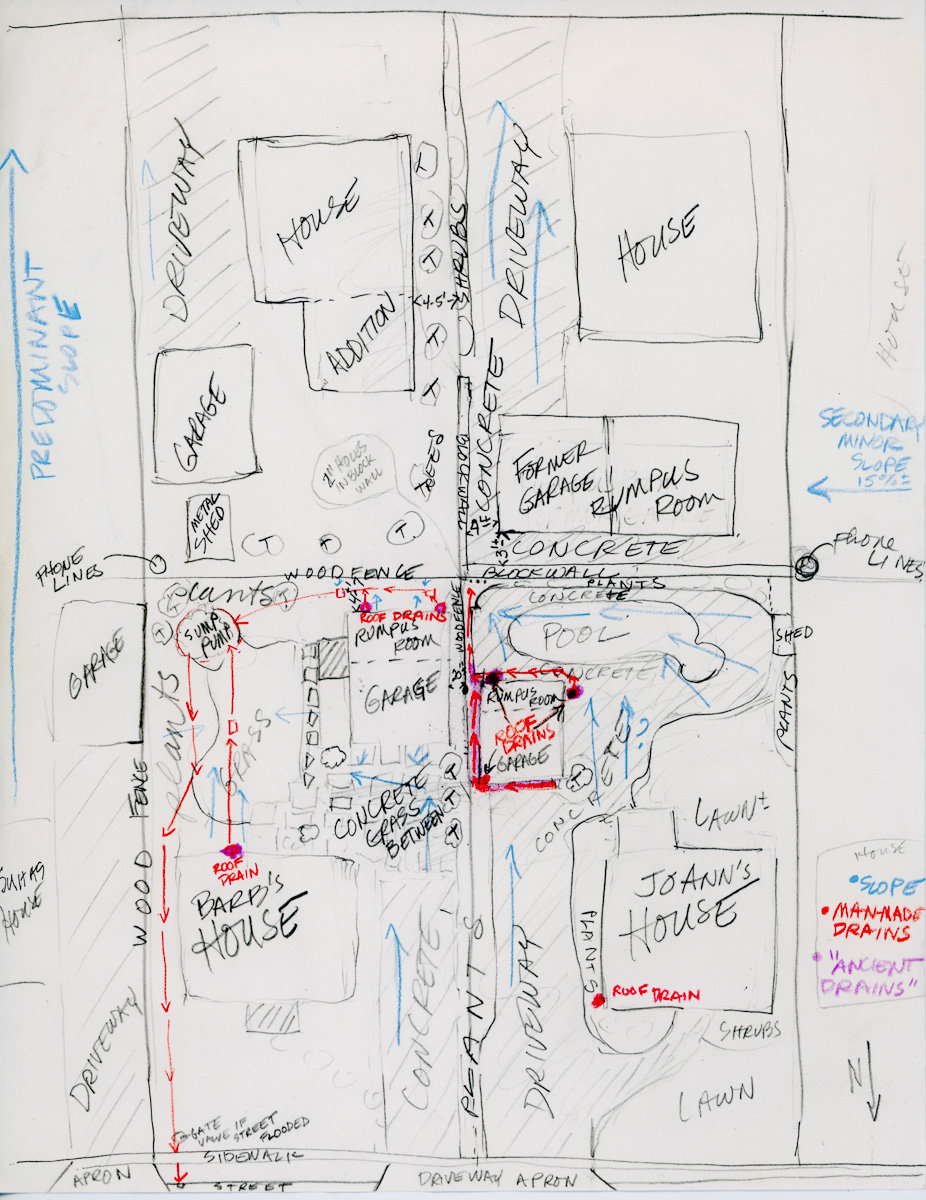 DRIVEWAY
HOUSE
SHRUBS
DRIVEWAY
HOUSE
PREDOMINANT
SLOPE
ADDITION
<4.5'>
HOUSE
GARAGE
2" HOLES
IN BLOCK
WALL
TREES
CONCRETE
BLOCKWALL
FORMER
GARAGE
RUMPUS
ROOM
SECONDARY
MINOR
SLOPE
15%±
METAL
SHED
T
T
T
T
T
T
T
T
CONCRETE
PHONE
LINES
PHONE
LINES
WOOD FENCE
BLOCKWALL
PLANTS
CONCRETE
Plants
T
T
T
SUMP
PUMP
ROOF DRAINS
RUMPUS
ROOM
WOOD FENCE
POOL
SHED
GARAGE
GARAGE
CONCRETE
RUMPUS
ROOM
ROOF
DRAINS
GARAGE
PLANTS
Plants
GRASS
CONCRETE
?
T
T
T
CONCRETE
GRASS
BETWEEN
LAWN±
WOOD FENCE
ROOF
DRAIN
BARB'S
HOUSE
JOANN'S
HOUSE
HOUSE
SLOPE
MAN-MADE
DRAINS
"ANCIENT
DRAINS"
HOUSE
PLANTS
ROOF DRAIN
DRIVEWAY
CONCRETE
PLANTS
DRIVEWAY
SHRUBS
LAWN
N
GATE
VALVE IF
STREET
FLOODED
SIDEWALK
APRON
STREET
DRIVEWAY APRON